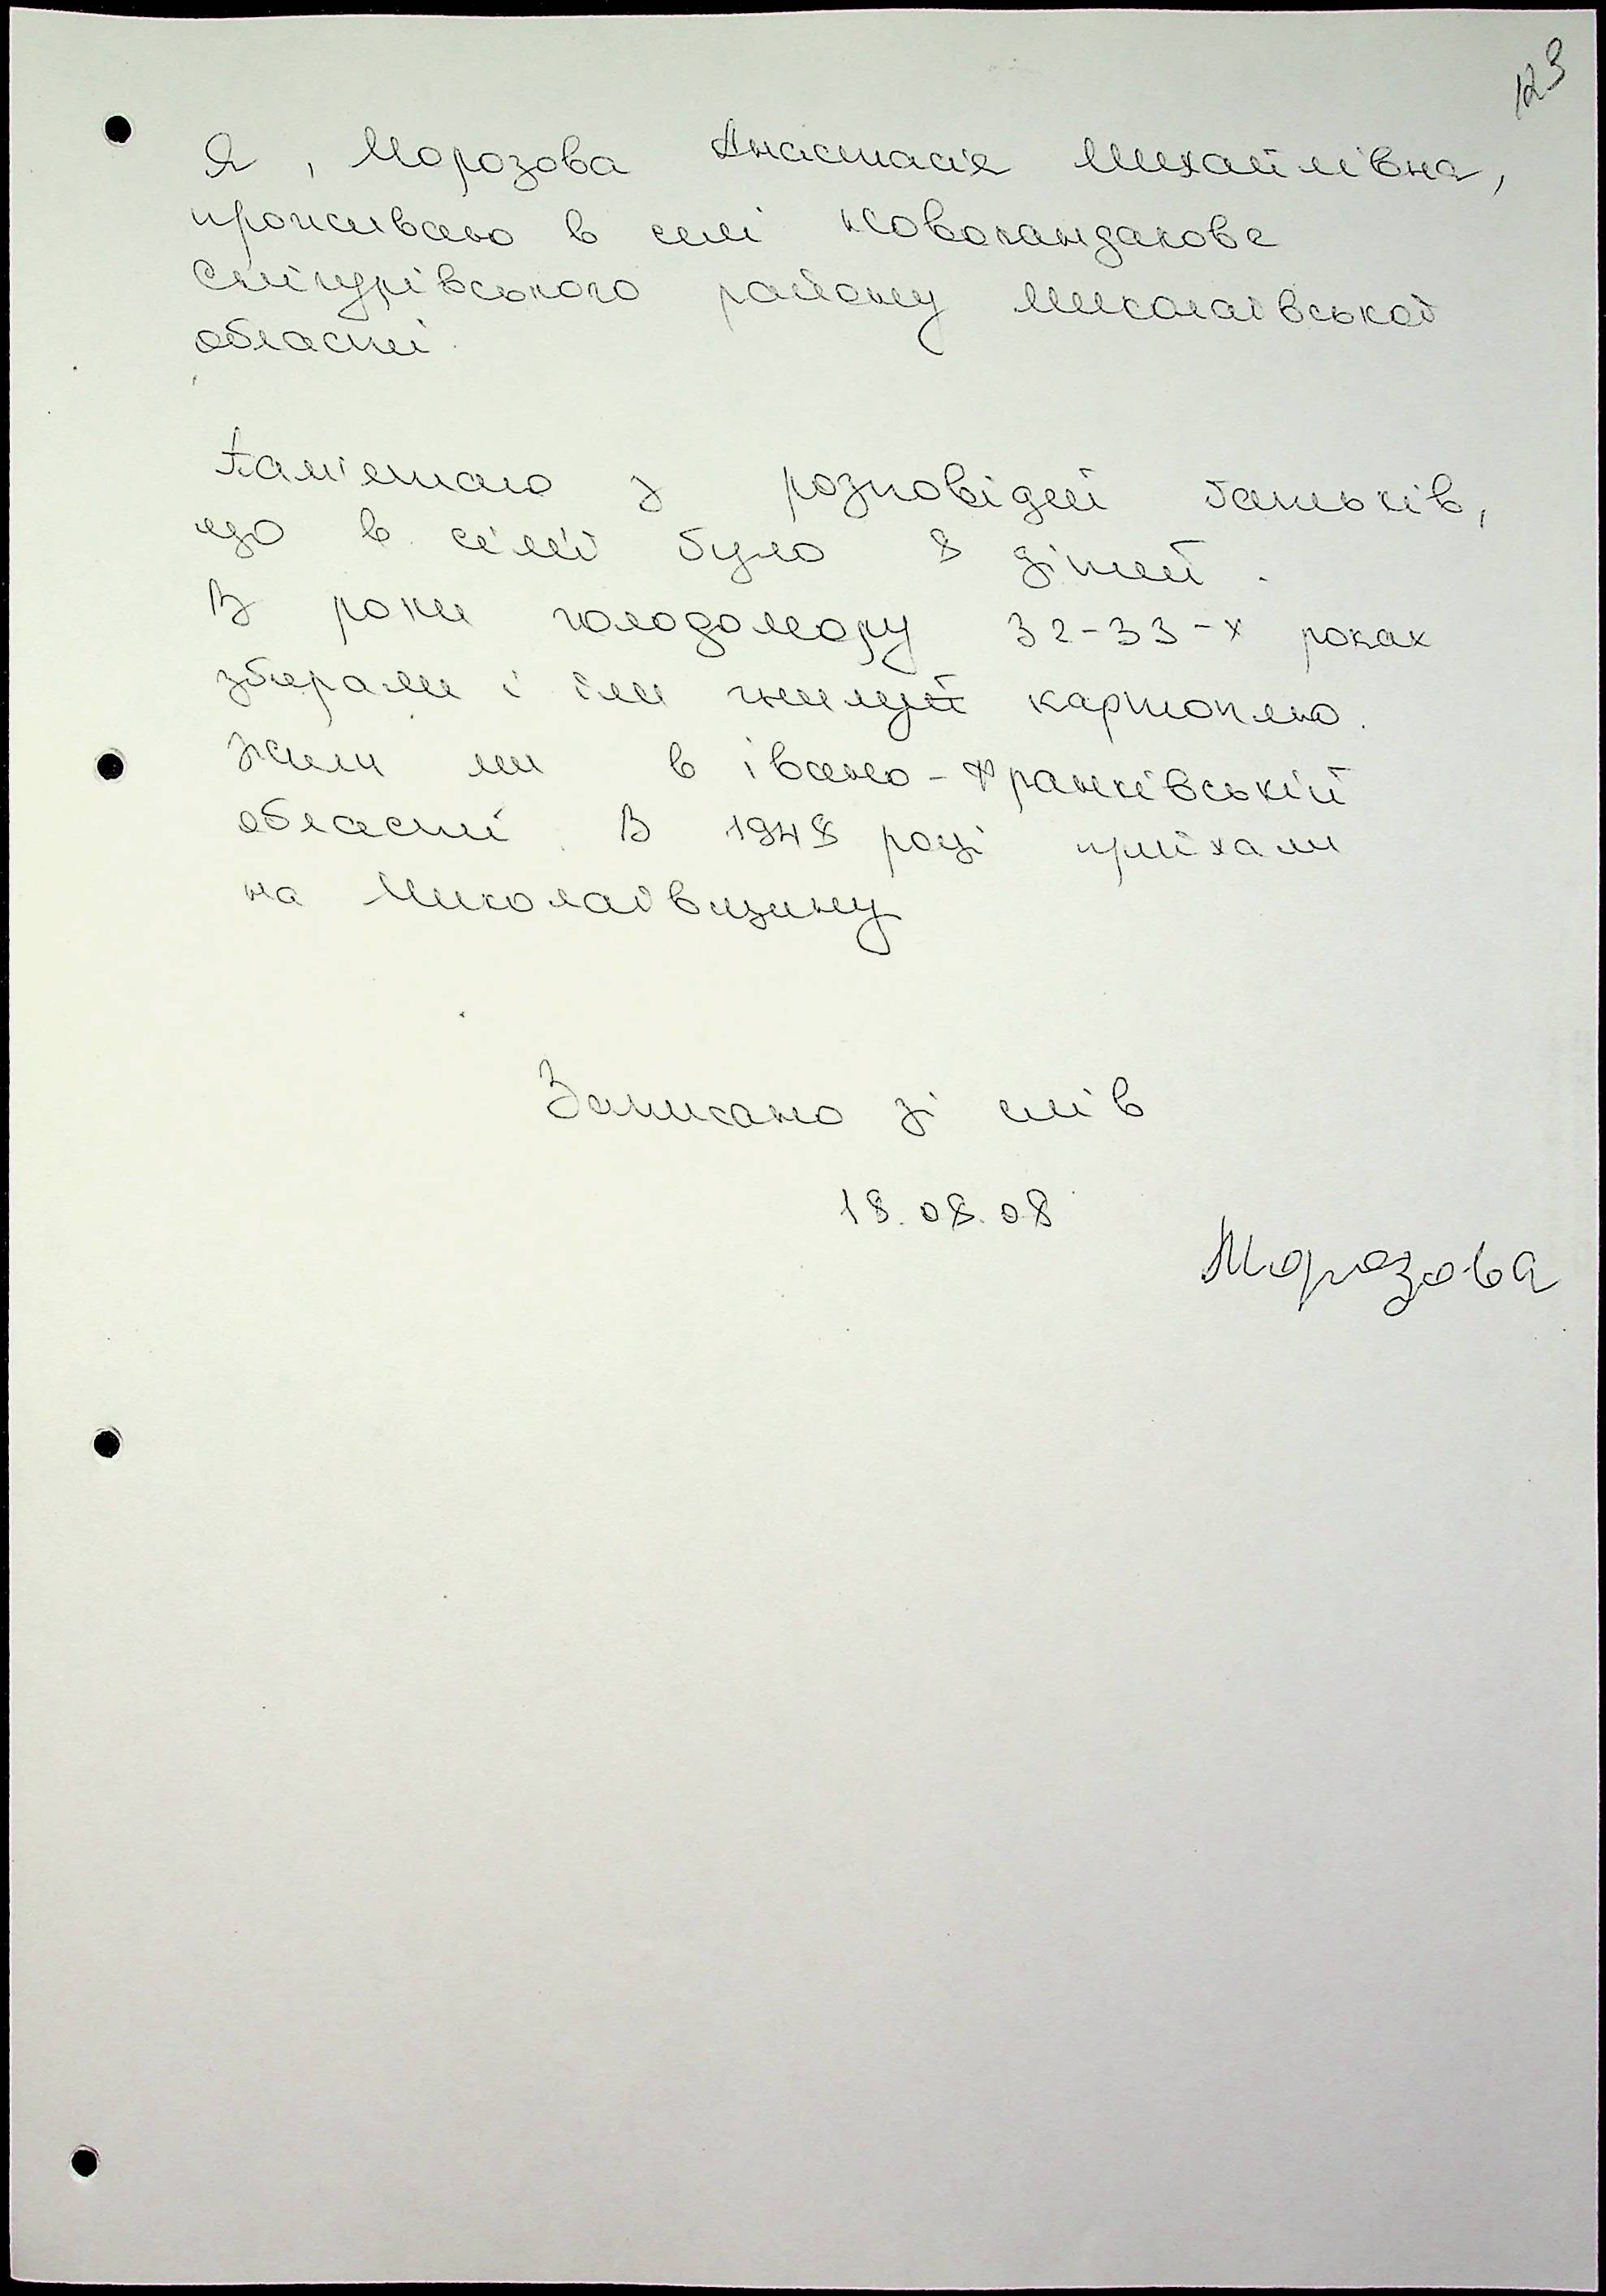 123
Я, Морозова Анастасія Михайлівна,
проживаю в селі Новокандакове
Снігурівського району Миколаївської
області.
Пам'ятаю з розповідей батьків,
що в сім'ї було 8 дітей.
В роки голодомору 32-33-х роках
збирали і їли гнилую картоплю.
Жили ми в івано-Франківській
області. В 1948 році приїхали
на Миколаївщину
Записано зі слів
18.08.08
Морозова